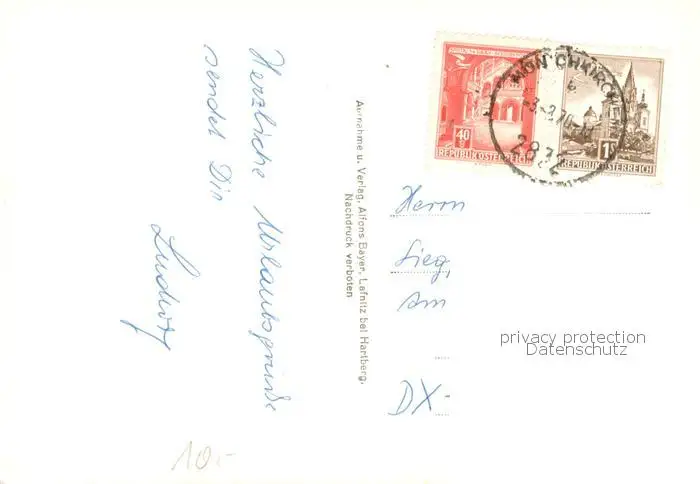 Herzliche Urlaubsgrüße
sendet Dir
Ludwig
Aufnahme u. Verlag, Alfons Bayer, Lafnitz bei Hartberg.
Nachdruck verboten
40
REPUBLIK ÖSTERREICH
1S
REPUBLIK ÖSTERREICH
MÖNICHKIRCH
2872
Herrn
Sieg,
Am
DX-
privacy protection
Datenschutz
10.-